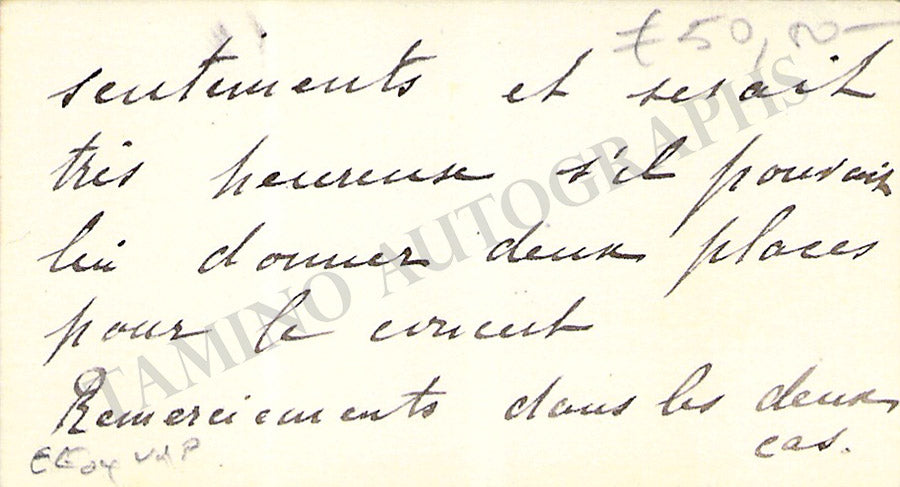 £ 50,20-
sentiments et serait
très heureuse s'il pouvait
lui donner deux places
pour le concert
Remerciements dans les deux
cas.
TAMINO AUTOGRAPHS